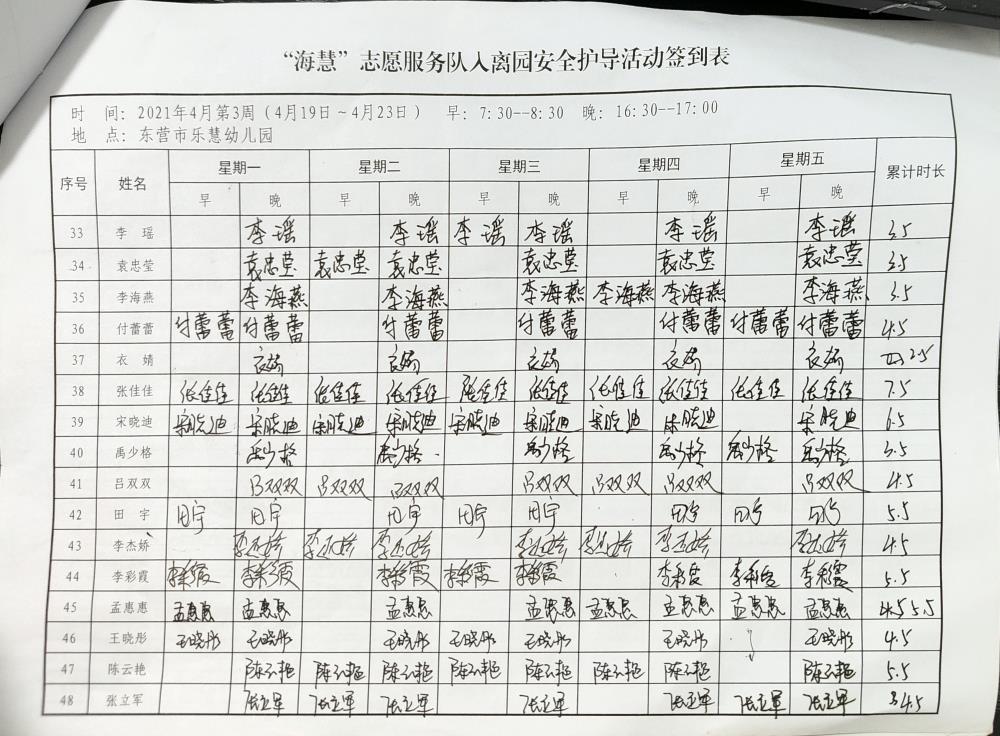 “海慧”志愿服务队入离园安全护导活动签到表
时 间：2021年4月第3周（4月19日～4月23日） 早：7:30--8:30 晚：16:30--17:00
地 点：东营市乐慧幼儿园
序号 姓名 星期一 星期二 星期三 星期四 星期五 累计时长
早 晚 早 晚 早 晚 早 晚 早 晚
33 李 瑶 李瑶 李瑶 李瑶 李瑶 李瑶 李瑶 3.5
34 袁忠莹 袁忠莹 袁忠莹 袁忠莹 袁忠莹 袁忠莹 袁忠莹 3.5
35 李海燕 李海燕 李海燕 李海燕 李海燕 李海燕 李海燕 3.5
36 付蕾蕾 付蕾蕾 付蕾蕾 付蕾蕾 付蕾蕾 付蕾蕾 付蕾蕾 付蕾蕾 4.5
37 衣 婧 衣婧 衣婧 衣婧 衣婧 衣婧 2.5
38 张佳佳 张佳佳 张佳佳 张佳佳 张佳佳 张佳佳 张佳佳 张佳佳 张佳佳 张佳佳 张佳佳 7.5
39 宋晓迪 宋晓迪 宋晓迪 宋晓迪 宋晓迪 宋晓迪 宋晓迪 宋晓迪 宋晓迪 宋晓迪 6.5
40 禹少格 禹少格 禹少格 禹少格 禹少格 禹少格 禹少格 3.5
41 吕双双 吕双双 吕双双 吕双双 吕双双 吕双双 吕双双 吕双双 4.5
42 田 宇 田宇 田宇 田宇 田宇 田宇 田宇 田宇 田宇 5.5
43 李杰娇 李杰娇 李杰娇 李杰娇 李杰娇 李杰娇 李杰娇 李杰娇 4.5
44 李彩霞 李彩霞 李彩霞 李彩霞 李彩霞 李彩霞 李彩霞 李彩霞 李彩霞 5.5
45 孟惠惠 孟惠惠 孟惠惠 孟惠惠 孟惠惠 孟惠惠 孟惠惠 孟惠惠 孟惠惠 4.5 5.5
46 王晓彤 王晓彤 王晓彤 王晓彤 王晓彤 王晓彤 王晓彤 王晓彤 4.5
47 陈云艳 陈云艳 陈云艳 陈云艳 陈云艳 陈云艳 陈云艳 陈云艳 陈云艳 5.5
48 张立军 张立军 张立军 张立军 张立军 张立军 张立军 张立军 4.5